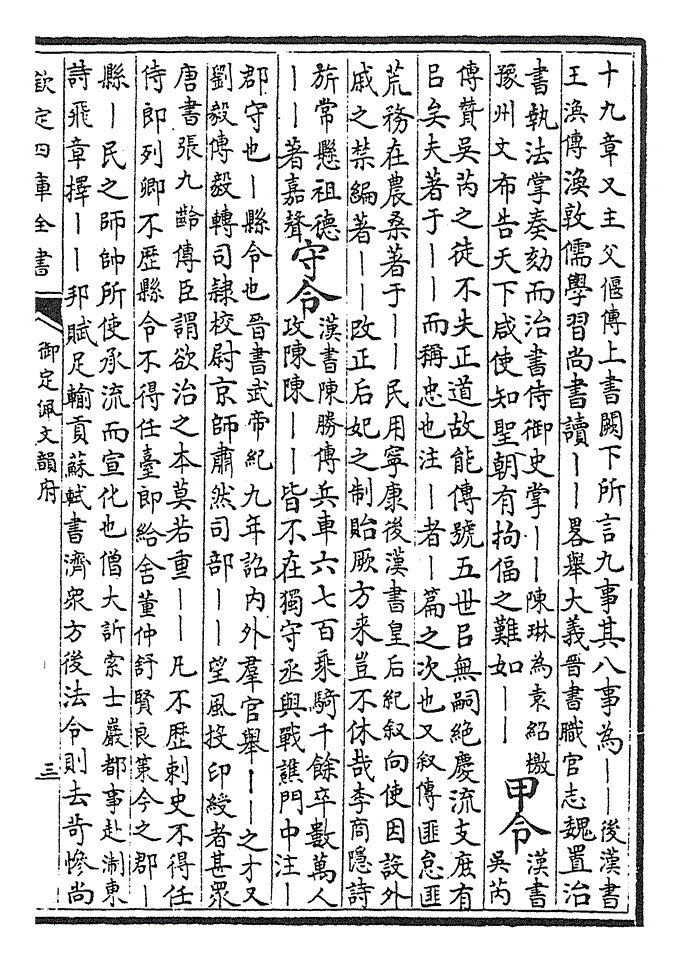 十九章又主父偃傳上書闕下所言九事其八事為——後漢書
王渙傳渙敦儒學習尚書讀——畧舉大義晉書職官志魏置治
書執法掌奏劾而治書侍御史掌——陳琳為袁紹檄
豫州文布告天下咸使知聖朝有拘偪之難如——
甲令
漢書
吳芮
傳贊吳芮之徒不失正道故能傳號五世㠯無嗣絶慶流支庶有
㠯矣夫著于——而稱忠也注—者—篇之次也又叙傳匪怠匪
荒務在農桑著于——民用寧康後漢書皇后紀叙向使因設外
戚之禁編著——改正后妃之制貽厥方来豈不休哉李商隱詩
旂常懸祖德
——著嘉聲
守令
漢書陳勝傳兵車六七百乘騎千餘卒數萬人
攻陳陳——皆不在獨守丞與戰譙門中注—
郡守也—縣令也晉書武帝紀九年詔内外羣官舉——之才又
劉毅傳毅轉司隸校尉京師肅然司部——望風投印綬者甚眾
唐書張九齡傳臣謂欲治之本莫若重——凡不歴刺史不得任
侍郎列卿不歴縣令不得任臺郎給舍董仲舒賢良䇿今之郡—
縣—民之師帥所使承流而宣化也僧大訢索士巖都事赴淛東
詩飛章擇——邦賦足輸貢蘇軾書濟衆方後法令則去苛慘尚
欽定四庫全書
御定佩文韻府
三